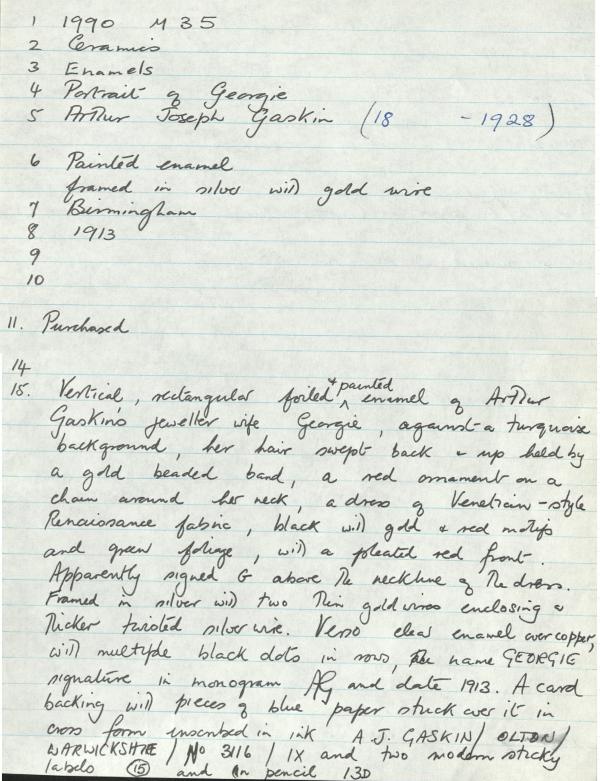 1 1990 M 35
2 Ceramics
3 Enamels
4 Portrait of Georgie
5 Arthur Joseph Gaskin (18 - 1928)
6 Painted enamel
framed in silver with gold wire
7 Birmingham
8 1913
9
10
11. Purchased
14
15. Vertical, rectangular foiled + painted enamel of Arthur
Gaskin's jeweller wife Georgie, against a turquoise
background, her hair swept back & up held by
a gold beaded band, a red ornament on a
chain around her neck, a dress of Venetian-style
Renaissance fabric, black with gold & red motifs
and green foliage, with a pleated red front.
Apparently signed G above the neckline of the dress.
Framed in silver with two thin gold wires enclosing a
thicker twisted silver wire. Verso clear enamel over copper,
with multiple black dots in rows, the name GEORGIE
signature in monogram AJG and date 1913. A card
backing with pieces of blue paper stuck over it in
cross form inscribed in ink A J. GASKIN / OLTON /
WARWICKSHIRE / No 3116 / IX and two modern sticky
labels (15) and in pencil 13D